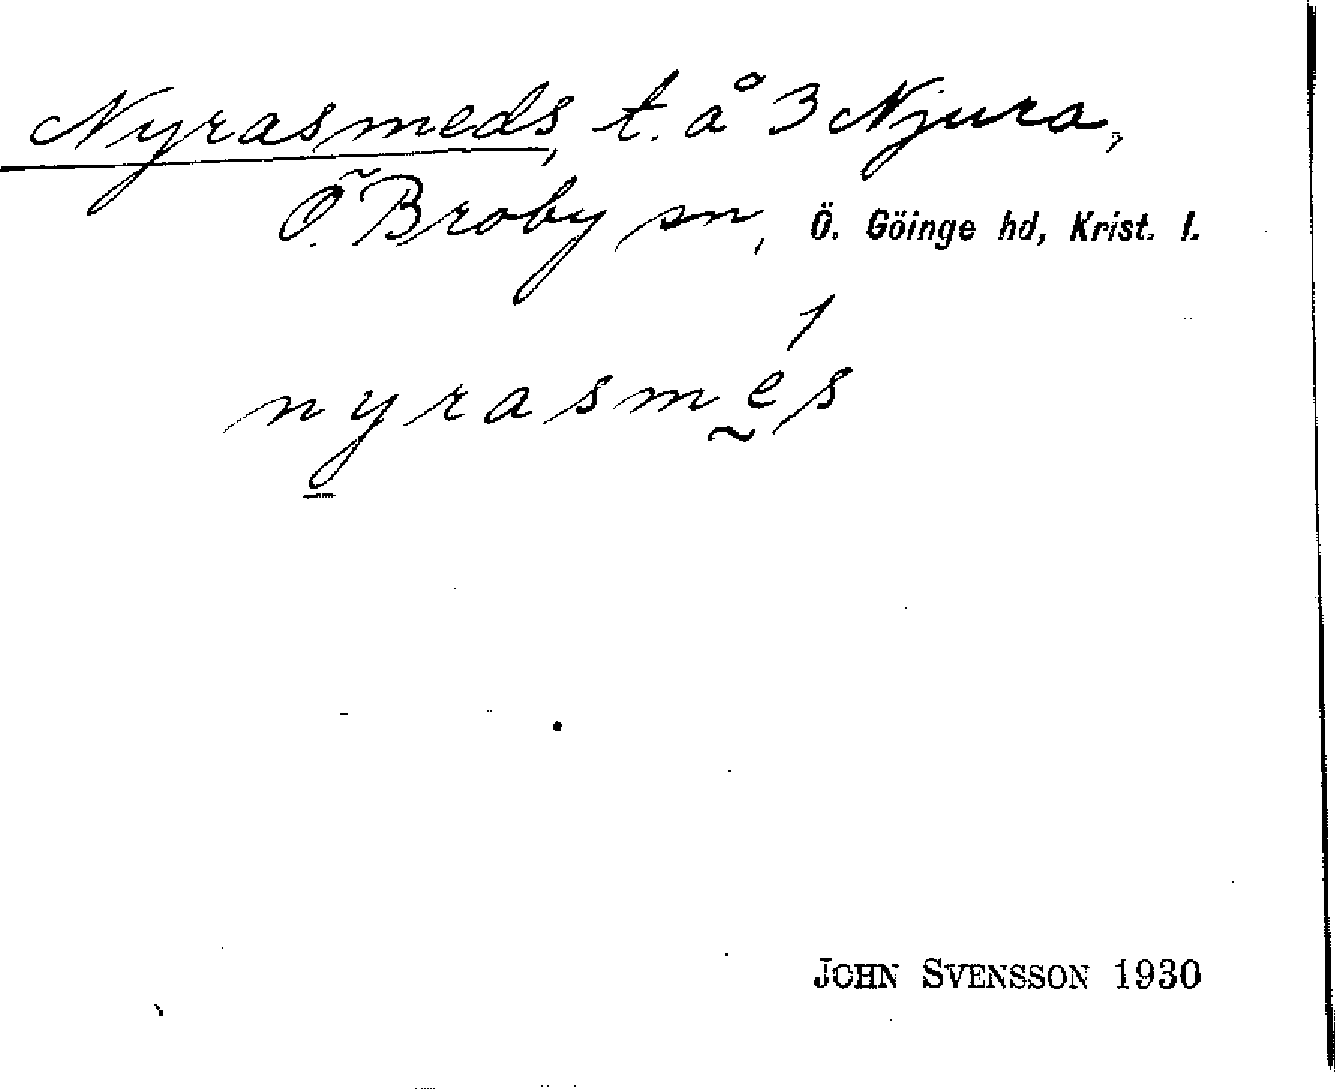 Nyrasmeds, t. å 3 Njura,
Ö. Broby sn, Ö. Göinge hd, Krist. l.
nyrasmés
JOHN SVENSSON 1930